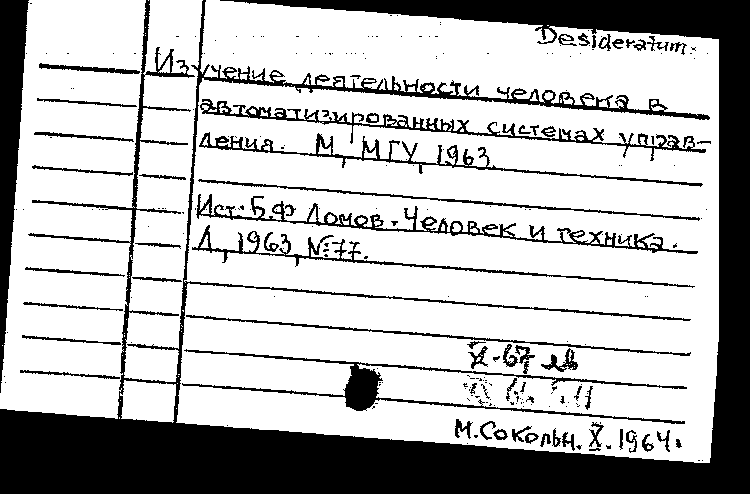 Desideratum.
Изучение деятельности человека в
автоматизированных системах управ-
ления. М, МГУ, 1963.
Ист: Б.Ф Ломов. Человек и техника.
Л., 1963, №77.
X-67
М. Сокольн. X. 1964.